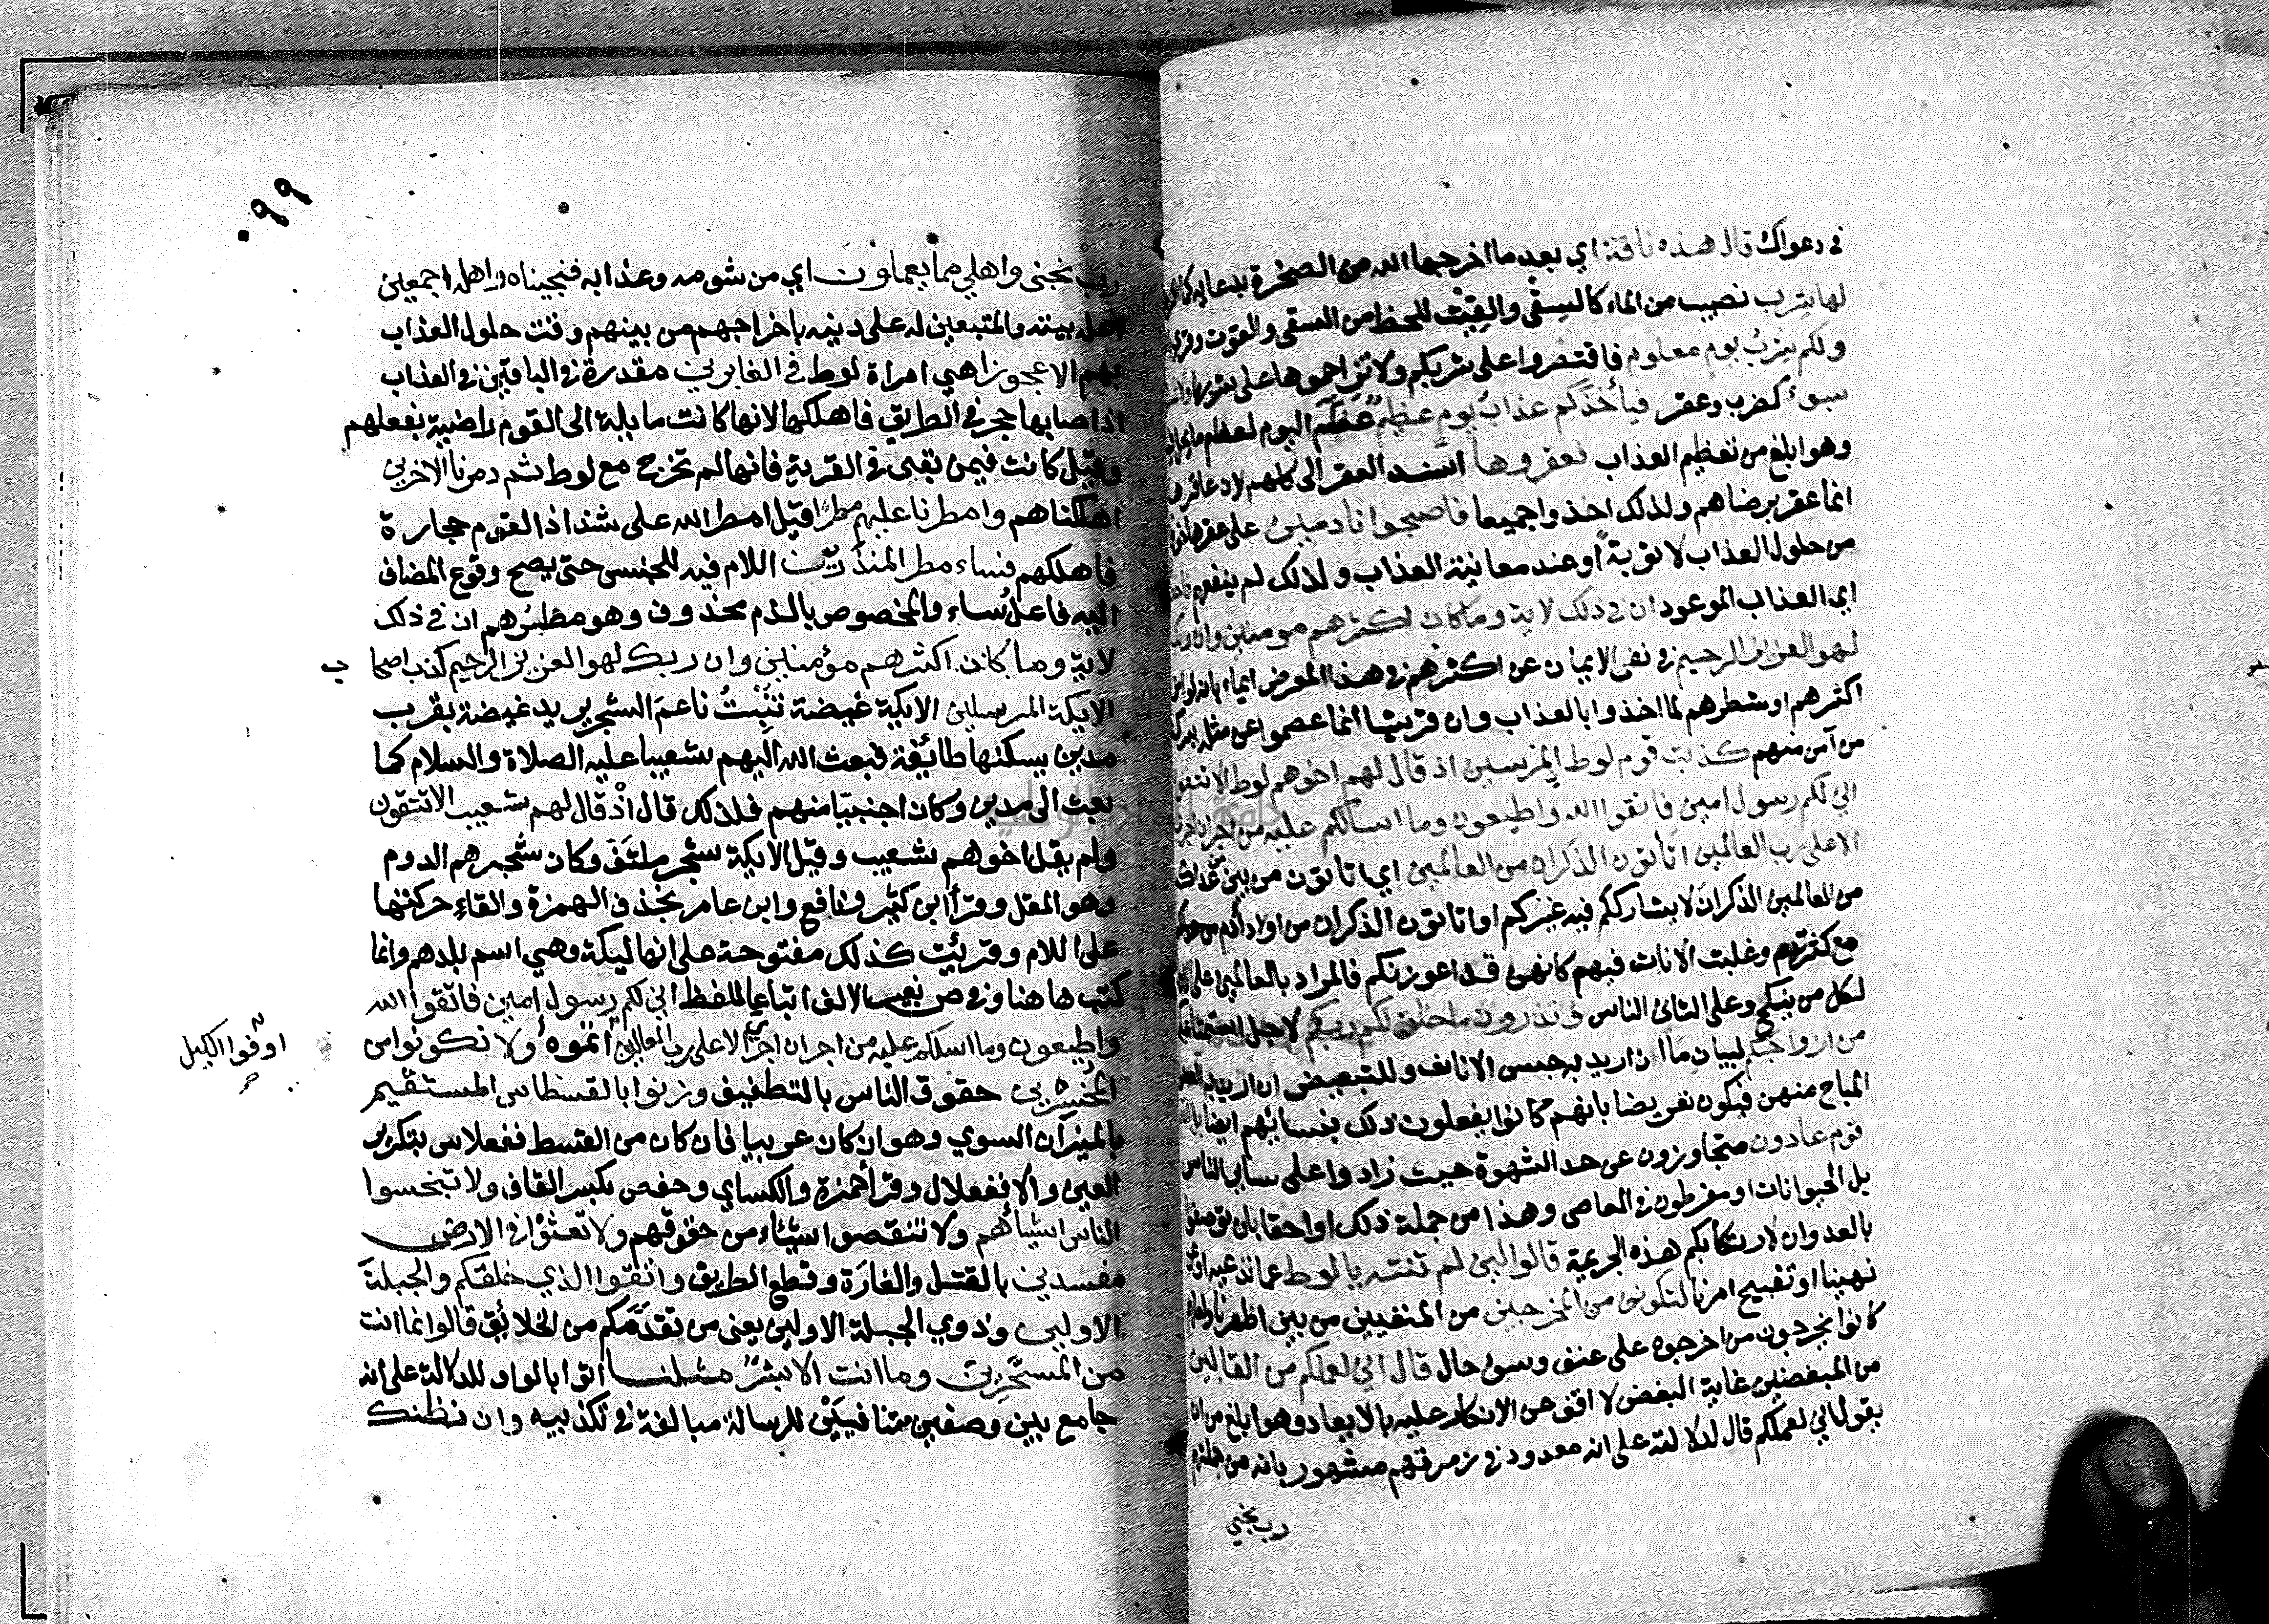 في دعواك قال هذه ناقة اي بعد ما اخرجها الله من الصخرة بدعايه كما
لها شرب نصيب من الماء كالسقى والقيت للحظ من السقى والقوت وقرئ
ولكم شرب يوم معلوم فاقتصروا على شربكم ولا تزاحموها على شربها
بسوء كضرب وعقر فيأخذكم عذاب يوم عظيم عظم اليوم لعظم ما يحل
وهو ابلغ من تعظيم العذاب فعقروها اسند العقر الى كلهم لان عاقرها
انما عقر برضاهم ولذلك اخذوا جميعا فاصبحوا نادمين على عقرها
من حلول العذاب لا توبة او عند معاينة العذاب ولذلك لم ينفعهم
اي العذاب الموعود ان في ذلك لاية وما كان اكثرهم مومنين وان ربك
لهو العزيز الرحيم في نفى الايمان عن اكثرهم في هذا المعرض ايماء بانه لو امن
اكثرهم او شطرهم لما اخذوا بالعذاب وان قريشا انما عصموا عن مثله ببركة
من آمن منهم كذبت قوم لوط المرسلين اذ قال لهم اخوهم لوط الا تتقون
اني لكم رسول امين فاتقوا الله واطيعون وما اسالكم عليه من اجر ان اجري
الا على رب العالمين اتأتون الذكران من العالمين اي اتاتون من بين من عداكم
من العالمين الذكران لا يشارككم فيه غيركم او اتاتون الذكران من اولاد آدم
مع كثرتهم وغلبت الاناث فيهم كانهن قد اعوزنكم فالمراد بالعالمين على الاول
لكل من ينكح وعلى الثاني الناس وتذرون ما خلق لكم ربكم لاجل استمتاعكم
من ازواجكم لبيان ما ان اريد به جنس الاناث وللتبعيض ان اريد به العضو
المباح منهن فيكون تعريضا بانهم كانوا يفعلون ذلك بنسائهم ايضا بل انتم
قوم عادون متجاوزون عن حد الشهوة حيث زادوا على ساير الناس
بل الحيوانات او مفرطون في المعاصي وهذا من جملة ذلك او احقا بان توصفوا
بالعدوان لارتكابكم هذه الجريمة قالوا لين لم تنته يا لوط عما تدعيه او عن
نهينا او تقبيح امرنا لتكونن من المخرجين من المنفيين من بين اظهرنا
كانوا يخرجون من اخرجوه على عنف وسوء حال قال اني لعملكم من القالين
من المبغضين غاية البغض لا اقف عن الانكار عليه بالايعاد وهو ابلغ من ان
يقول اني لعملكم قال للدلالة على انه معدود في زمرتهم مشهور بانه من جملتهم
رب نجني
٩٩
رب نجني واهلي مما يعملون اي من شومه وعذابه فنجيناه واهله اجمعين
اهل بيته والمتبعين له على دينه باخراجهم من بينهم وقت حلول العذاب
بهم الا عجوزا هي امراة لوط في الغابرين مقدرة في الباقين في العذاب
اذ اصابها حجر في الطريق فاهلكها لانها كانت مايلة الى القوم راضية بفعلهم
وقيل كانت فيمن بقى في القرية فانها لم تخرج مع لوط ثم دمرنا الاخرين
اهلكناهم وامطرنا عليهم مطرا قيل امطر الله على شذاذ القوم حجارة
فاهلكهم فساء مطر المنذرين اللام فيه للجنس حتى يصح وقوع المضاف
اليه فاعل ساء والمخصوص بالذم محذوف وهو مطرهم ان في ذلك
لاية وما كان اكثرهم مؤمنين وان ربك لهو العزيز الرحيم كذب اصحاب
الايكة المرسلين الايكة غيضة تنبت ناعم الشجر يريد غيضة بقرب
مدين يسكنها طائفة فبعث الله اليهم شعيبا عليه الصلاة والسلام كما
بعث الى مدين وكان اجنبيا منهم فلذلك قال اذ قال لهم شعيب الا تتقون
ولم يقل اخوهم شعيب وقيل الايكة شجر ملتف وكان شجرهم الدوم
وهو المقل وقرأ ابن كثير ونافع وابن عامر بحذف الهمزة والقاء حركتها
على اللام وقرئت كذلك مفتوحة على انها ليكة وهي اسم بلدهم وانما
كتب هاهنا وفي ص بغير الالف اتباعا للفظ اني لكم رسول امين فاتقوا الله
واطيعون وما اسلكم عليه من اجر ان اجري الا على رب العالمين اتموه ولا تكونوا من
اوفوا الكيل
صح
المخسرين حقوق الناس بالتطفيف وزنوا بالقسطاس المستقيم
بالميزان السوي وهو ان كان عربيا فان كان من القسط ففعلاس بتكرير
العين والا ففعلال وقرأ حمزة والكساي وحفص بكسر القاف ولا تبخسوا
الناس اشياءهم ولا تنقصوا شيئاء من حقوقهم ولا تعثوا في الارض
مفسدين بالقتل والغارة وقطع الطريق واتقوا الذي خلقكم والجبلة
الاولين وذوي الجبلة الاولين يعنى من تقدمكم من الخلائق قالوا انما انت
من المسحرين وما انت الا بشر مثلنا اتوا بالواو للدلالة على انه
جامع بين وصفين متنافيين للرسالة مبالغة في تكذيبه وان نظنك